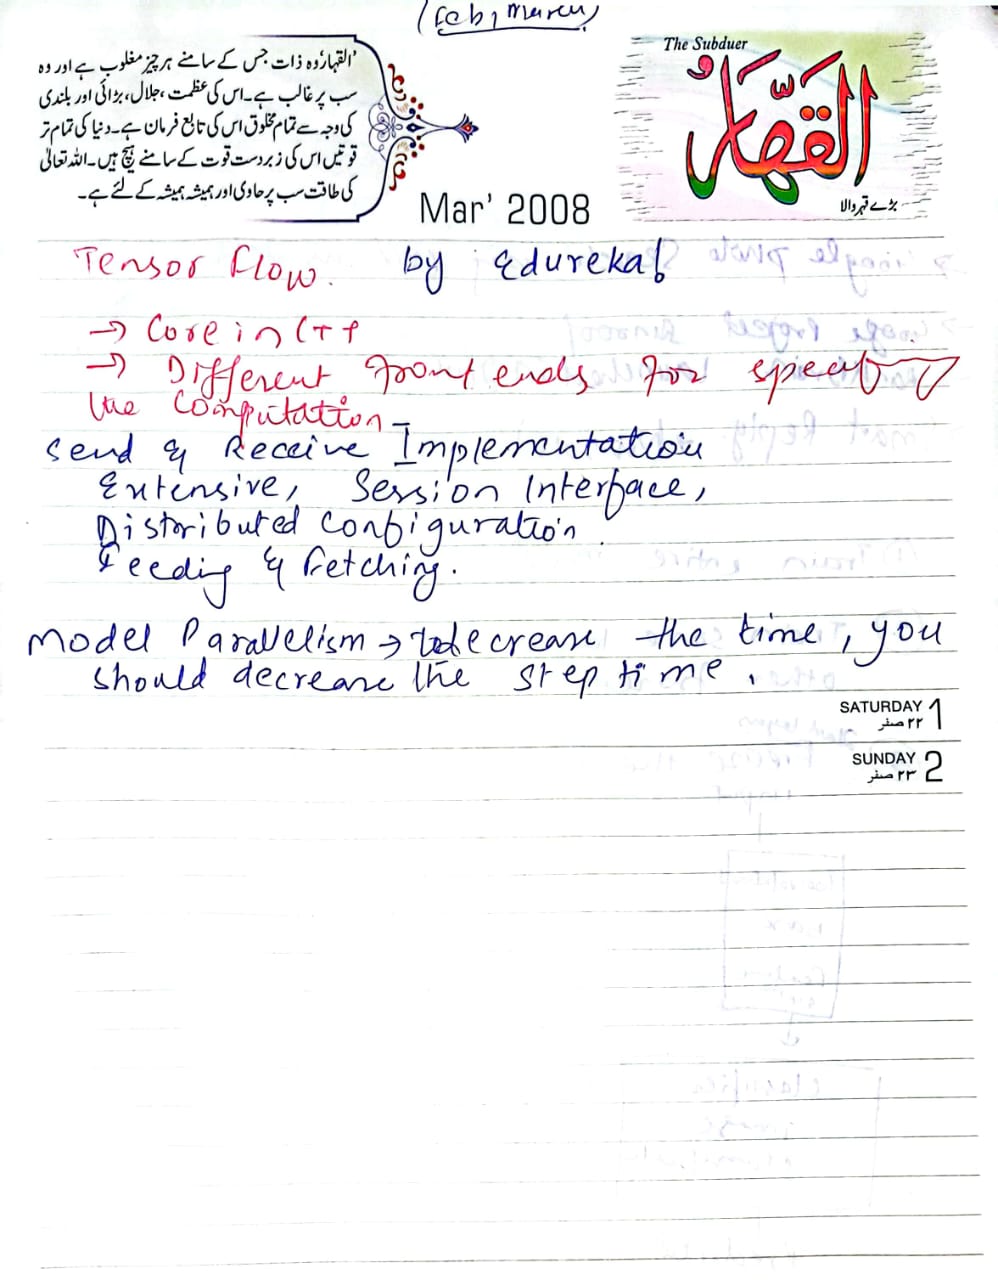 (Feb, March)
The Subduer
القهار
بڑے قہر والا
'القہار' وہ ذات جس کے سامنے ہر چیز مغلوب ہے اور وہ
سب پر غالب ہے۔ اس کی عظمت، جلال، بڑائی اور بلندی
کی وجہ سے تمام مخلوق اس کی تابع فرمان ہے۔ دنیا کی تمام تر
قوتیں اس کی زبردست قوت کے سامنے ہیچ ہیں۔ اللہ تعالیٰ
کی طاقت سب پر حاوی اور ہمیشہ ہمیشہ کے لئے ہے۔
Mar' 2008
Tensor Flow. by Edureka!
→ Core in C++
→ Different front ends for
the Computation
Send & Receive Implementation
Extensive, Session Interface,
Distributed Configuration.
Feeding & Fetching.
Model Parallelism → to decrease the time, you
should decrease the step time.
SATURDAY 1
٢٢ صفر
SUNDAY 2
٢٣ صفر